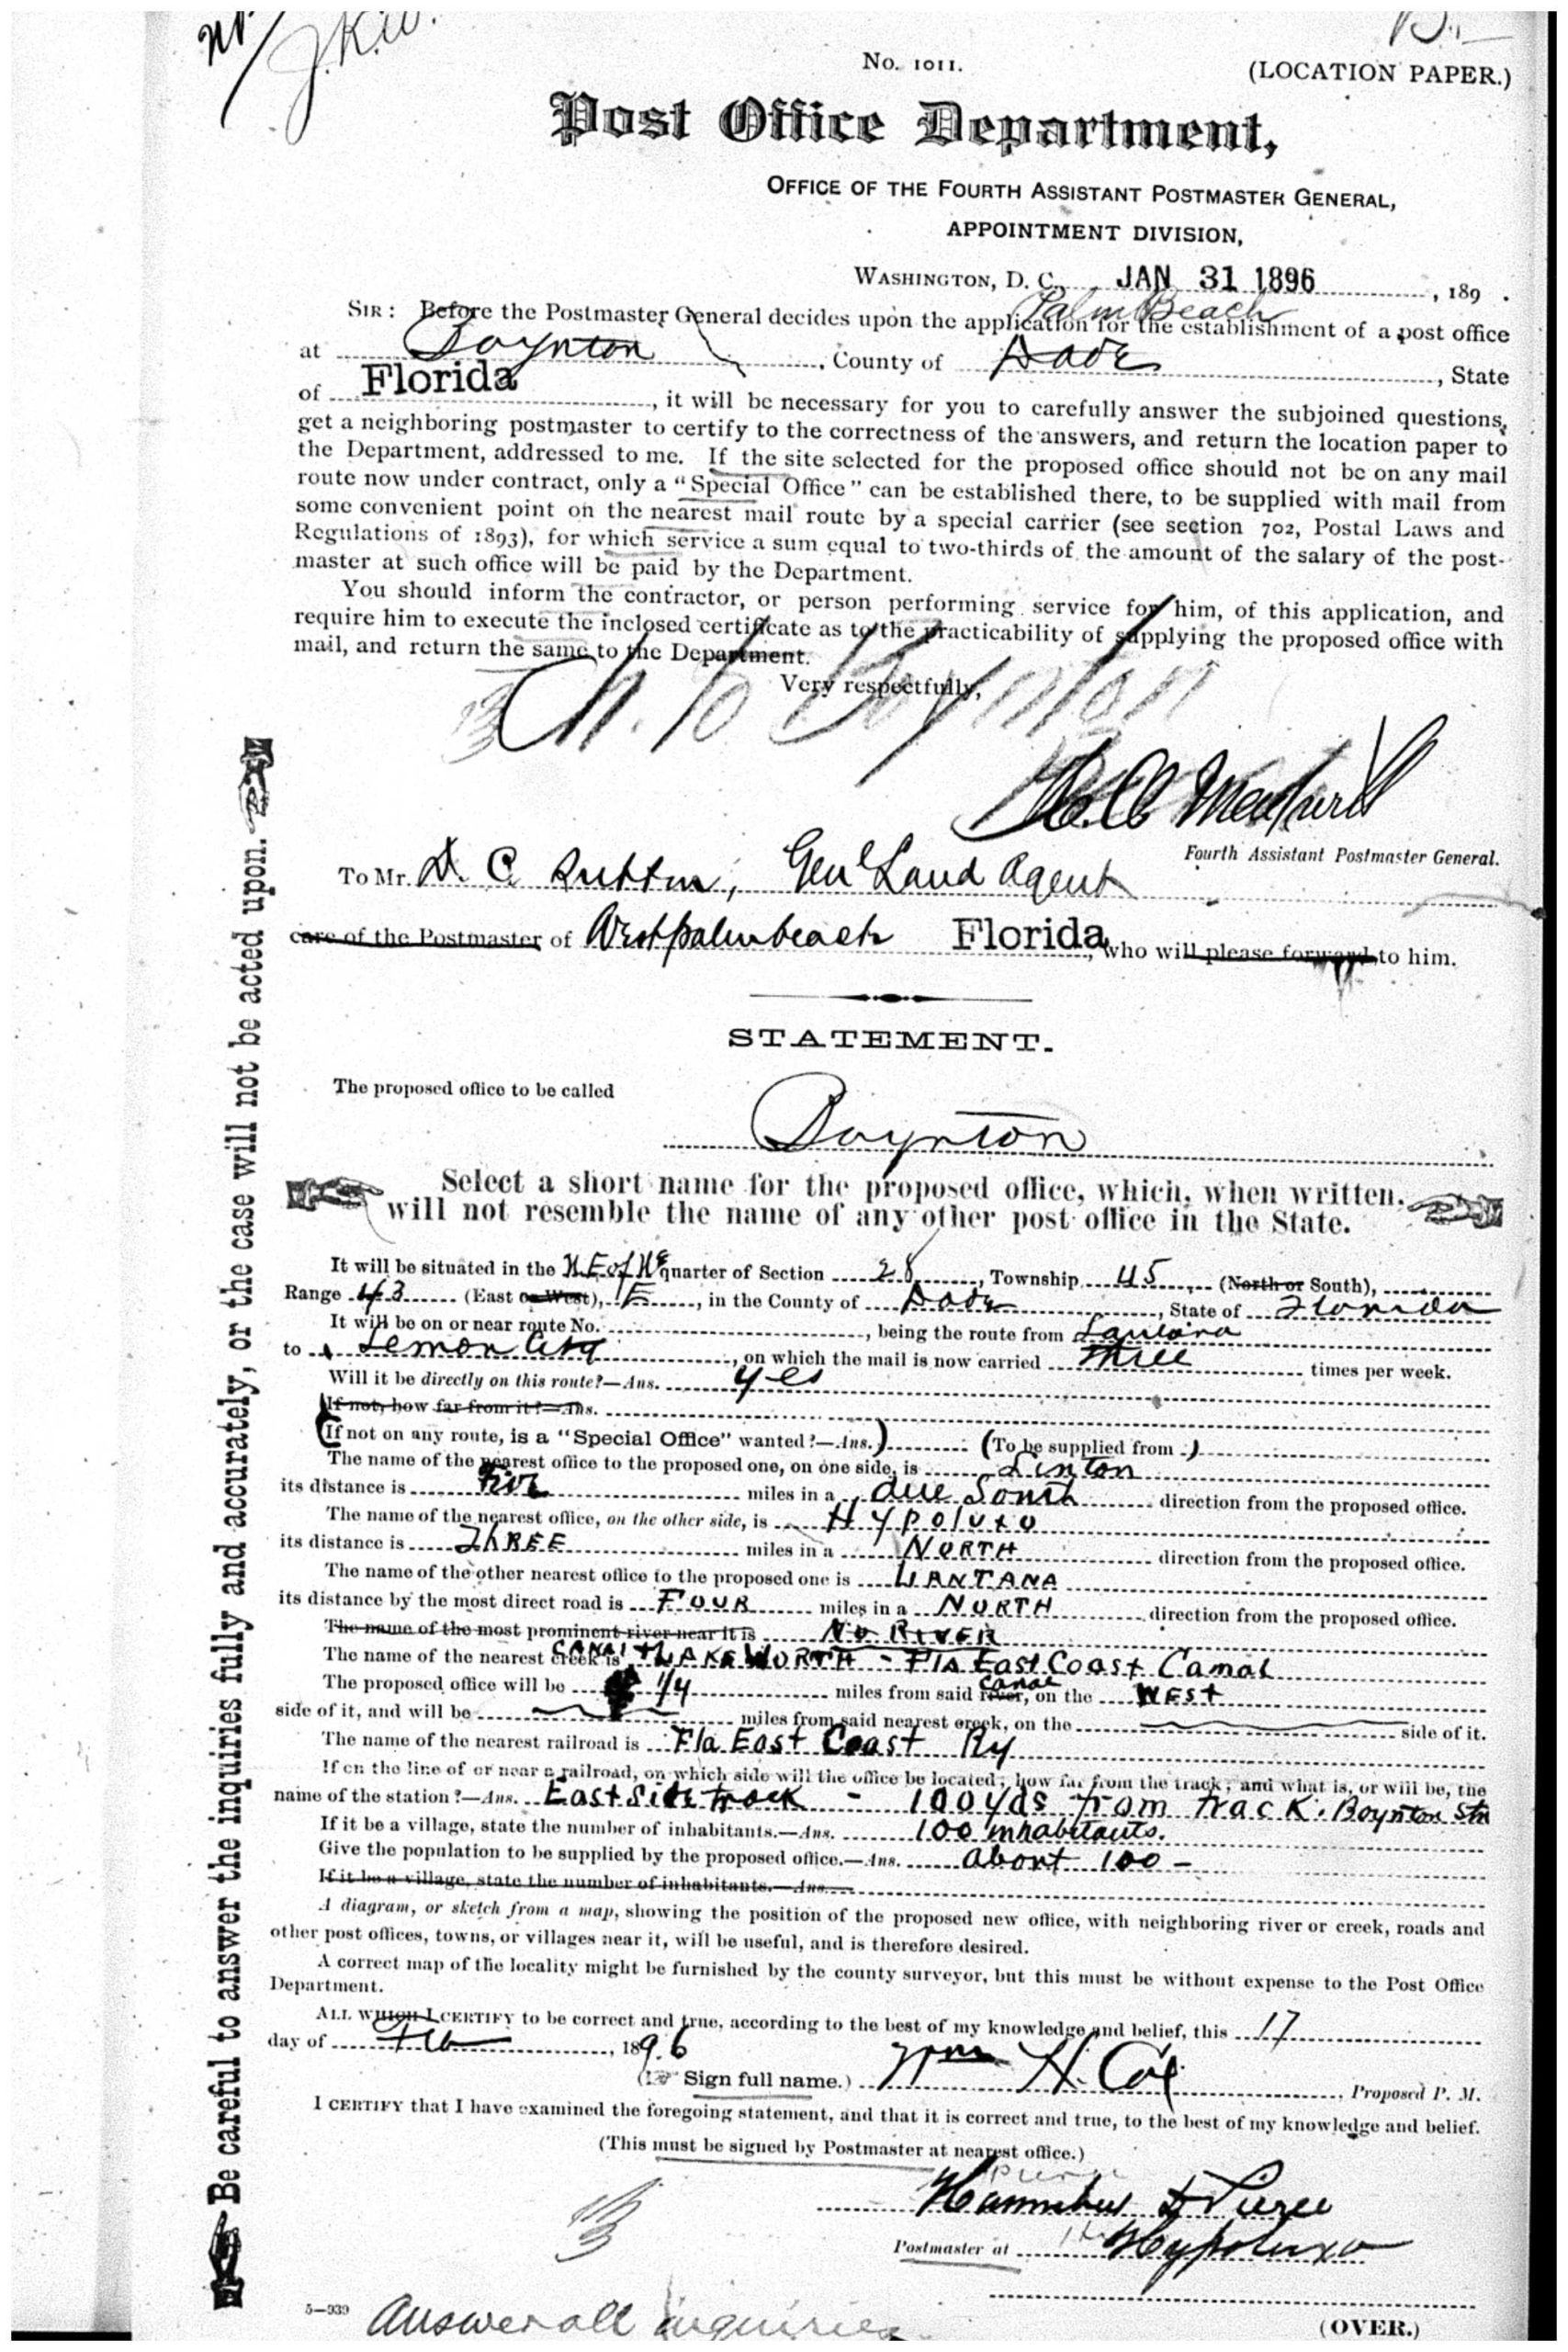 J.K.W.
No. 1011.
(LOCATION PAPER.)
Post Office Department,
OFFICE OF THE FOURTH ASSISTANT POSTMASTER GENERAL,
APPOINTMENT DIVISION,
WASHINGTON, D. C., JAN 31 1896, 189 .
Palm Beach
SIR: Before the Postmaster General decides upon the application for the establishment of a post office
at Boynton, County of Dade, State
of Florida, it will be necessary for you to carefully answer the subjoined questions,
get a neighboring postmaster to certify to the correctness of the answers, and return the location paper to
the Department, addressed to me. If the site selected for the proposed office should not be on any mail
route now under contract, only a "Special Office" can be established there, to be supplied with mail from
some convenient point on the nearest mail route by a special carrier (see section 702, Postal Laws and
Regulations of 1893), for which service a sum equal to two-thirds of the amount of the salary of the post-
master at such office will be paid by the Department.
You should inform the contractor, or person performing service for him, of this application, and
require him to execute the inclosed certificate as to the practicability of supplying the proposed office with
mail, and return the same to the Department.
Very respectfully,
Boynton
Fourth Assistant Postmaster General.
To Mr. D. C. Sutton, Genl Land Agent
care of the Postmaster of Westpalmbeach Florida, who will please forward to him.
STATEMENT.
The proposed office to be called
Boynton
Select a short name for the proposed office, which, when written,
will not resemble the name of any other post office in the State.
It will be situated in the N.E of Ne quarter of Section 28, Township 45 (North or South),
Range 43 (East or West), E, in the County of Dade, State of Florida
It will be on or near route No. , being the route from Lantana
to Lemon City, on which the mail is now carried Three times per week.
Will it be directly on this route?—Ans. yes
If not, how far from it?—Ans.
(If not on any route, is a "Special Office" wanted?—Ans.) (To be supplied from )
The name of the nearest office to the proposed one, on one side, is Linton
its distance is Five miles in a due South direction from the proposed office.
The name of the nearest office, on the other side, is Hypoluxo
its distance is THREE miles in a NORTH direction from the proposed office.
The name of the other nearest office to the proposed one is LANTANA
its distance by the most direct road is FOUR miles in a NORTH direction from the proposed office.
The name of the most prominent river near it is NO RIVER
The name of the nearest creek is CANAL + LAKE WORTH - Fla East Coast Canal
The proposed office will be 1/4 miles from said river, canal on the WEST
side of it, and will be miles from said nearest creek, on the side of it.
The name of the nearest railroad is Fla East Coast Ry
If on the line of or near a railroad, on which side will the office be located; how far from the track; and what is, or will be, the
name of the station?—Ans. East Side track - 100 yds from track. Boynton Stn
If it be a village, state the number of inhabitants.—Ans. 100 inhabitants.
Give the population to be supplied by the proposed office.—Ans. about 100 -
If it be a village, state the number of inhabitants.—Ans.
A diagram, or sketch from a map, showing the position of the proposed new office, with neighboring river or creek, roads and
other post offices, towns, or villages near it, will be useful, and is therefore desired.
A correct map of the locality might be furnished by the county surveyor, but this must be without expense to the Post Office
Department.
ALL WHICH I CERTIFY to be correct and true, according to the best of my knowledge and belief, this 17
day of Feb, 1896
(Sign full name.) Wm H. Cox, Proposed P. M.
I CERTIFY that I have examined the foregoing statement, and that it is correct and true, to the best of my knowledge and belief.
(This must be signed by Postmaster at nearest office.)
Hannibal D Pierce
Postmaster at Hypoluxo
5—939
Answer all inquiries
(OVER.)
Be careful to answer the inquiries fully and accurately, or the case will not be acted upon.